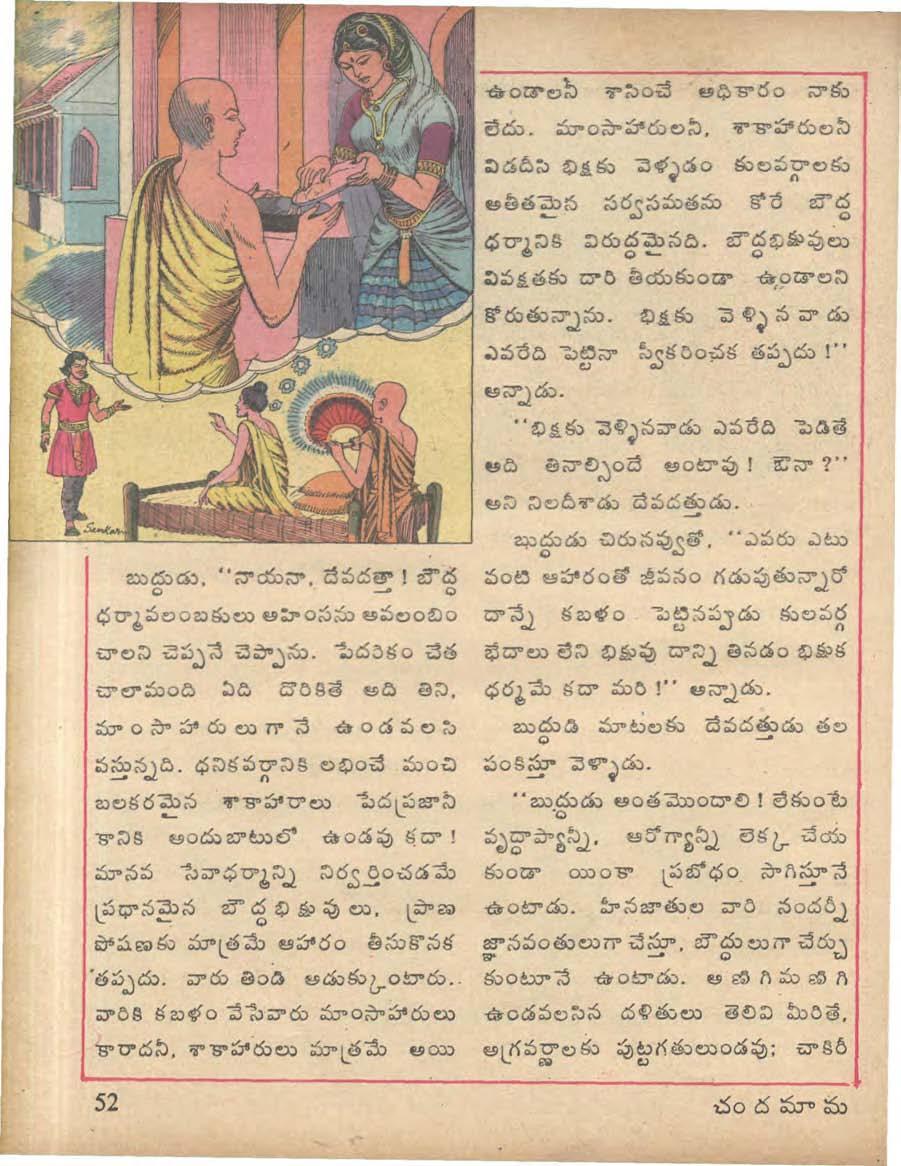 Sankar
బుద్ధుడు, “నాయనా, దేవదత్తా! బౌద్ధ
ధర్మావలంబకులు అహింసను అవలంబిం
చాలని చెప్పనే చెప్పాను. పేదరికం చేత
చాలామంది ఏది దొరికితే అది తిని,
మాంసాహారులుగానే ఉండవలసి
వస్తున్నది. ధనికవర్గానికి లభించే మంచి
బలకరమైన శాకాహారాలు పేదప్రజానీ
కానికి అందుబాటులో ఉండవు కదా!
మానవ సేవాధర్మాన్ని నిర్వర్తించడమే
ప్రధానమైన బౌద్ధభిక్షువులు, ప్రాణ
పోషణకు మాత్రమే ఆహారం తీసుకొనక
తప్పదు. వారు తిండి అడుక్కుంటారు.
వారికి కబళం వేసేవారు మాంసాహారులు
కారాదనీ, శాకాహారులు మాత్రమే అయి
ఉండాలనీ శాసించే అధికారం నాకు
లేదు. మాంసాహారులనీ, శాకాహారులనీ
విడదీసి భిక్షకు వెళ్ళడం కులవర్గాలకు
అతీతమైన సర్వసమతను కోరే బౌద్ధ
ధర్మానికి విరుద్ధమైనది. బౌద్ధభిక్షువులు
వివక్షతకు దారి తీయకుండా ఉండాలని
కోరుతున్నాను. భిక్షకు వెళ్ళినవాడు
ఎవరేది పెట్టినా స్వీకరించక తప్పదు!”
అన్నాడు.
“భిక్షకు వెళ్ళినవాడు ఎవరేది పెడితే
అది తినాల్సిందే అంటావు! ఔనా?”
అని నిలదీశాడు దేవదత్తుడు.
బుద్ధుడు చిరునవ్వుతో, “ఎవరు ఎటు
వంటి ఆహారంతో జీవనం గడుపుతున్నారో
దాన్నే కబళం పెట్టినప్పుడు కులవర్గ
భేదాలు లేని భిక్షువు దాన్ని తినడం భిక్షుక
ధర్మమే కదా మరి!” అన్నాడు.
బుద్ధుడి మాటలకు దేవదత్తుడు తల
పంకిస్తూ వెళ్ళాడు.
“బుద్ధుడు అంతమొందాలి! లేకుంటే
వృద్ధాప్యాన్నీ, ఆరోగ్యాన్నీ లెక్క చేయ
కుండా యింకా ప్రబోధం సాగిస్తూనే
ఉంటాడు. హీనజాతుల వారి నందర్నీ
జ్ఞానవంతులుగా చేస్తూ, బౌద్ధులుగా చేర్చు
కుంటూనే ఉంటాడు. అణిగిమణిగి
ఉండవలసిన దళితులు తెలివి మీరితే,
అగ్రవర్ణాలకు పుట్టగతులుండవు; చాకిరీ
52
చందమామ